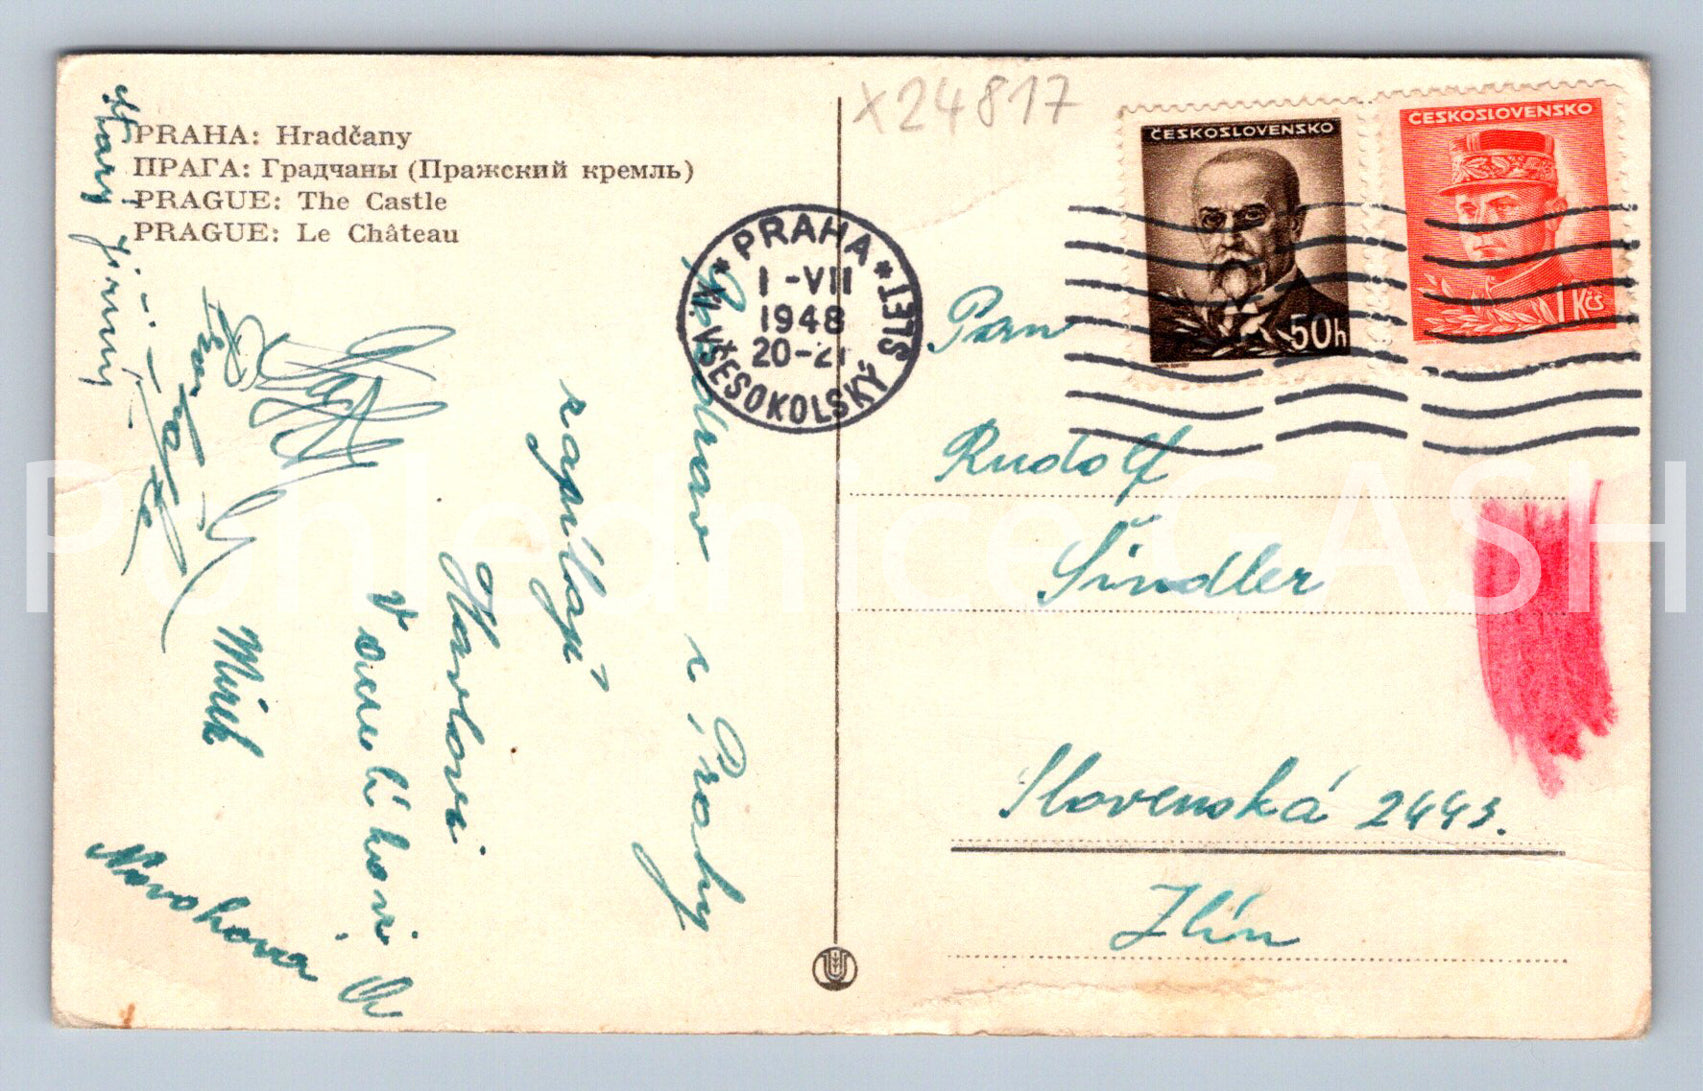 PRAHA: Hradčany
ПРАГА: Градчаны (Пражский кремль)
PRAGUE: The Castle
PRAGUE: Le Château
X24817
ČESKOSLOVENSKO
50h
ČESKOSLOVENSKO
1 Kčs
* PRAHA *
1-VII
1948
20-21
XI. VŠESOKOLSKÝ SLET
Pozdrav z Prahy
zasílají
Havlovi
Mirek
Novohova
Pan
Rudolf
Šindler
Slovenská 2443.
Zlín
Pohlednice GASH